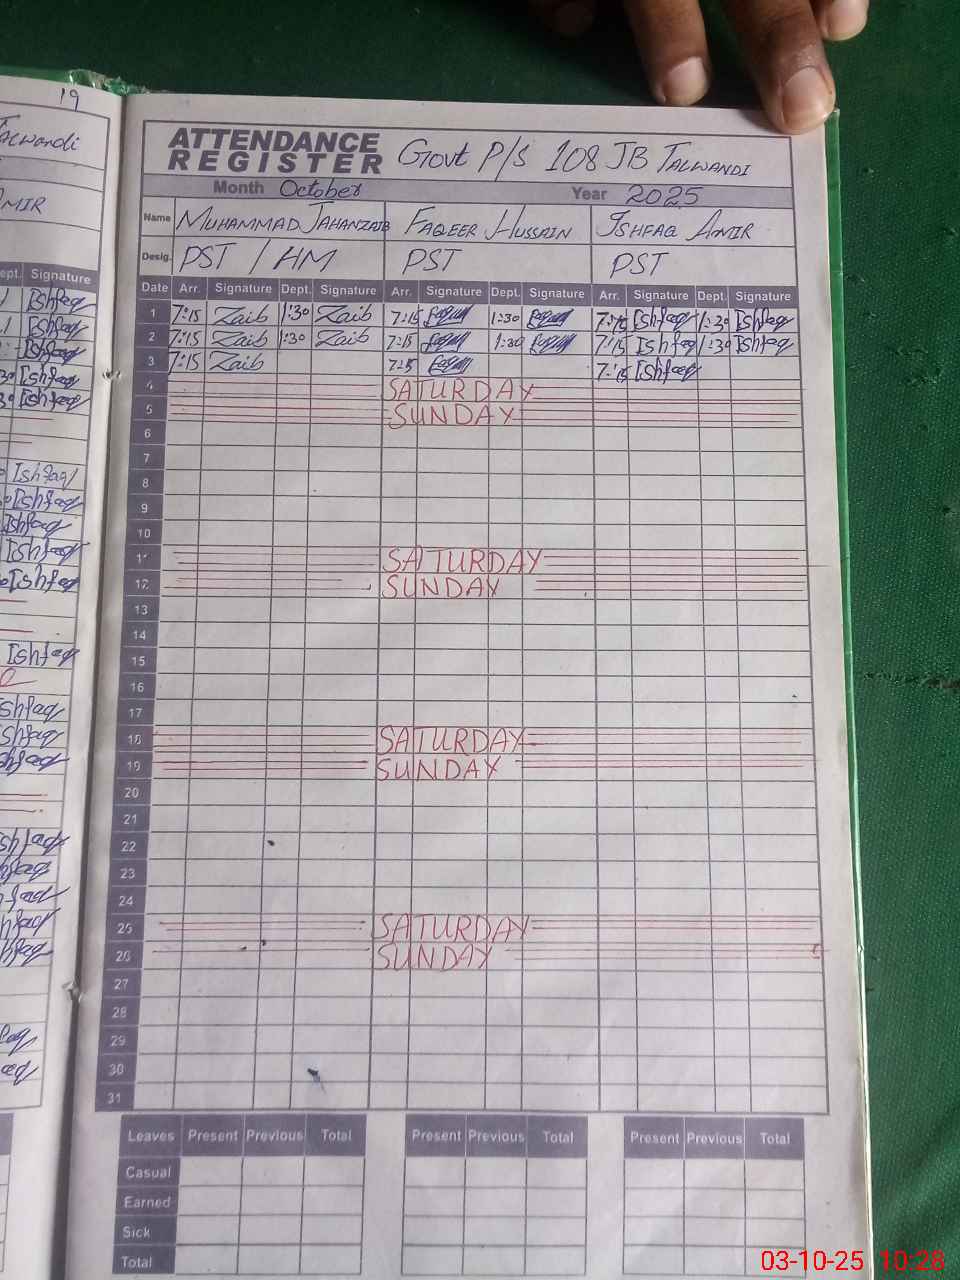 19
Talwandi
AMIR
ept. Signature
Ishfaq
Ishfaq
Ishfaq
Ishfaq
Ishfaq
Ishfaq
Ishfaq
Ishfaq
Ishfaq
Ishfaq
Ishfaq
shfaq
shfaq
shfaq
shfaq
hfaq
hfaq
hfaq
ATTENDANCE REGISTER Govt P/S 108 JB TALWANDI
Month October Year 2025
Name MUHAMMAD JAHANZAIB FAQEER HUSSAIN ISHFAQ AMIR
Desig. PST / HM PST PST
Date Arr. Signature Dept. Signature Arr. Signature Dept. Signature Arr. Signature Dept. Signature
1 7:15 Zaib 1:30 Zaib 7:15 1:30 7:15 Ishfaq 1:30 Ishfaq
2 7:15 Zaib 1:30 Zaib 7:15 1:30 7:15 Ishfaq 1:30 Ishfaq
3 7:15 Zaib 7:15 7:15 Ishfaq
4 SATURDAY
5 SUNDAY
6
7
8
9
10
11 SATURDAY
12 SUNDAY
13
14
15
16
17
18 SATURDAY
19 SUNDAY
20
21
22
23
24
25 SATURDAY
26 SUNDAY
27
28
29
30
31
Leaves Present Previous Total Present Previous Total Present Previous Total
Casual
Earned
Sick
Total
03-10-25 10:28